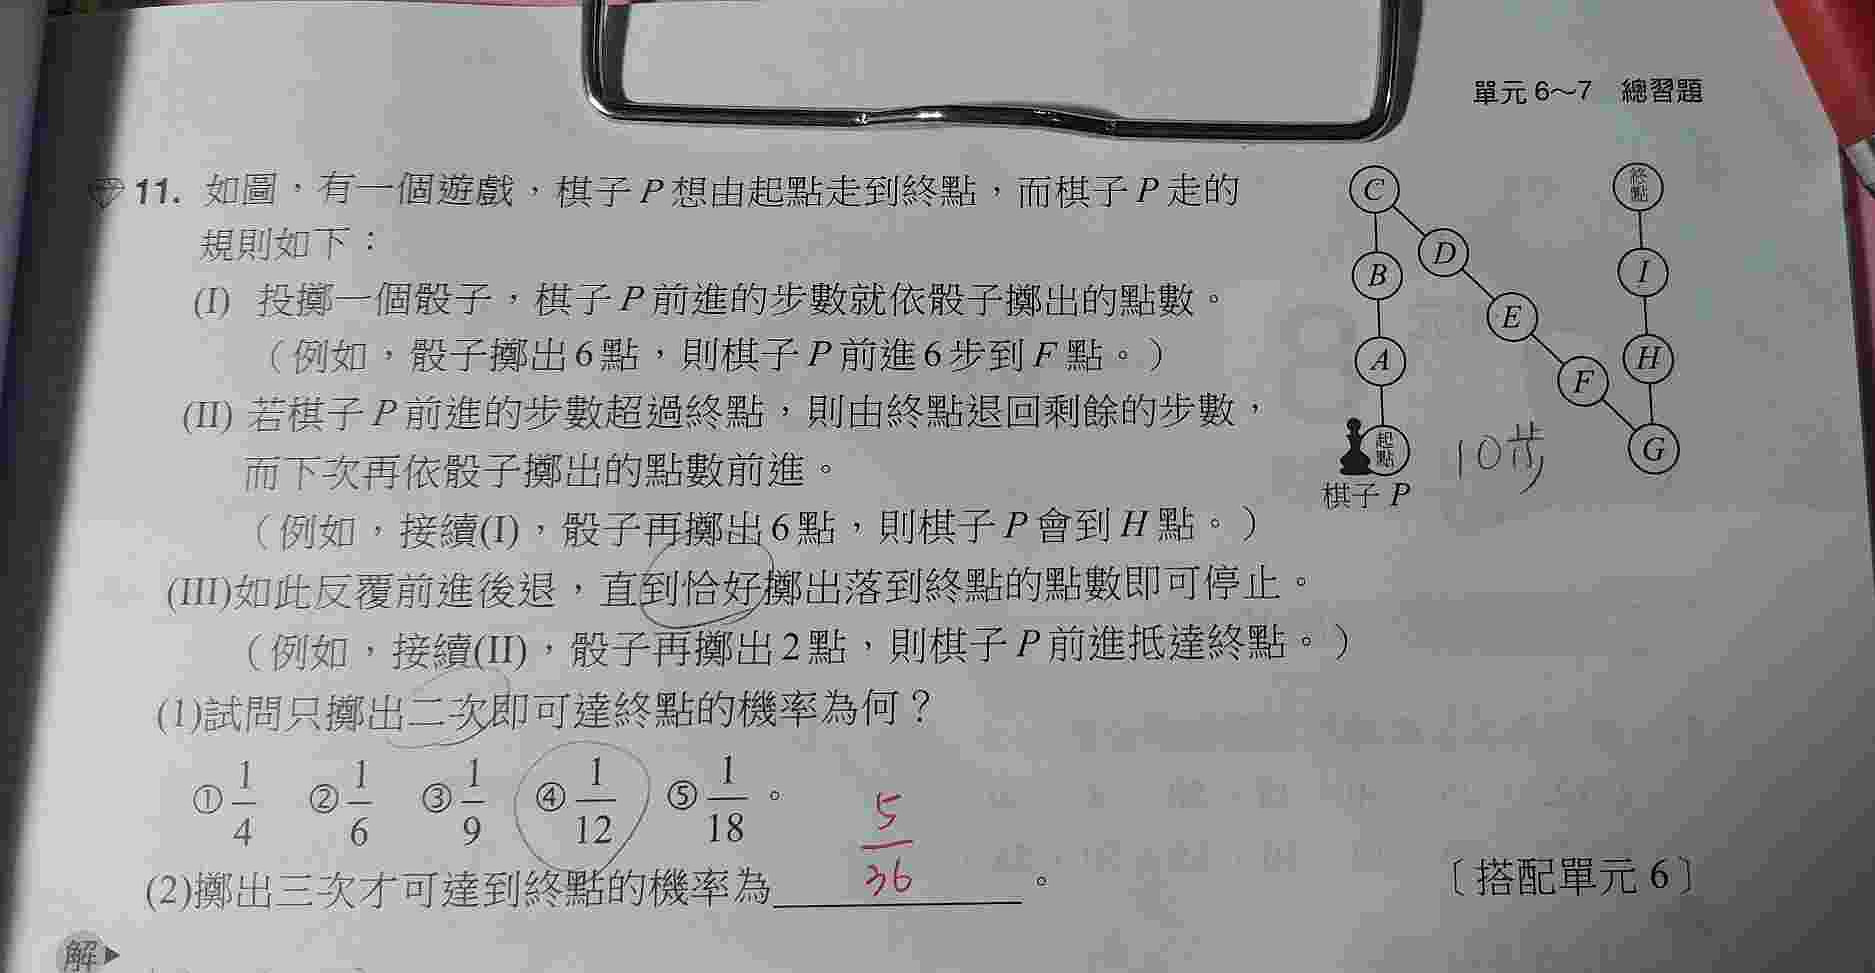 單元 6～7　總習題
11. 如圖，有一個遊戲，棋子 P 想由起點走到終點，而棋子 P 走的
規則如下：
(I) 投擲一個骰子，棋子 P 前進的步數就依骰子擲出的點數。
（例如，骰子擲出 6 點，則棋子 P 前進 6 步到 F 點。）
(II) 若棋子 P 前進的步數超過終點，則由終點退回剩餘的步數，
而下次再依骰子擲出的點數前進。
（例如，接續(I)，骰子再擲出 6 點，則棋子 P 會到 H 點。）
(III)如此反覆前進後退，直到恰好擲出落到終點的點數即可停止。
（例如，接續(II)，骰子再擲出 2 點，則棋子 P 前進抵達終點。）
C
終點
D
B
I
E
A
H
F
起點
G
棋子 P
10步
(1)試問只擲出二次即可達終點的機率為何？
① 1/4 ② 1/6 ③ 1/9 ④ 1/12 ⑤ 1/18 。
(2)擲出三次才可達到終點的機率為 5/36 。
〔搭配單元 6〕
解